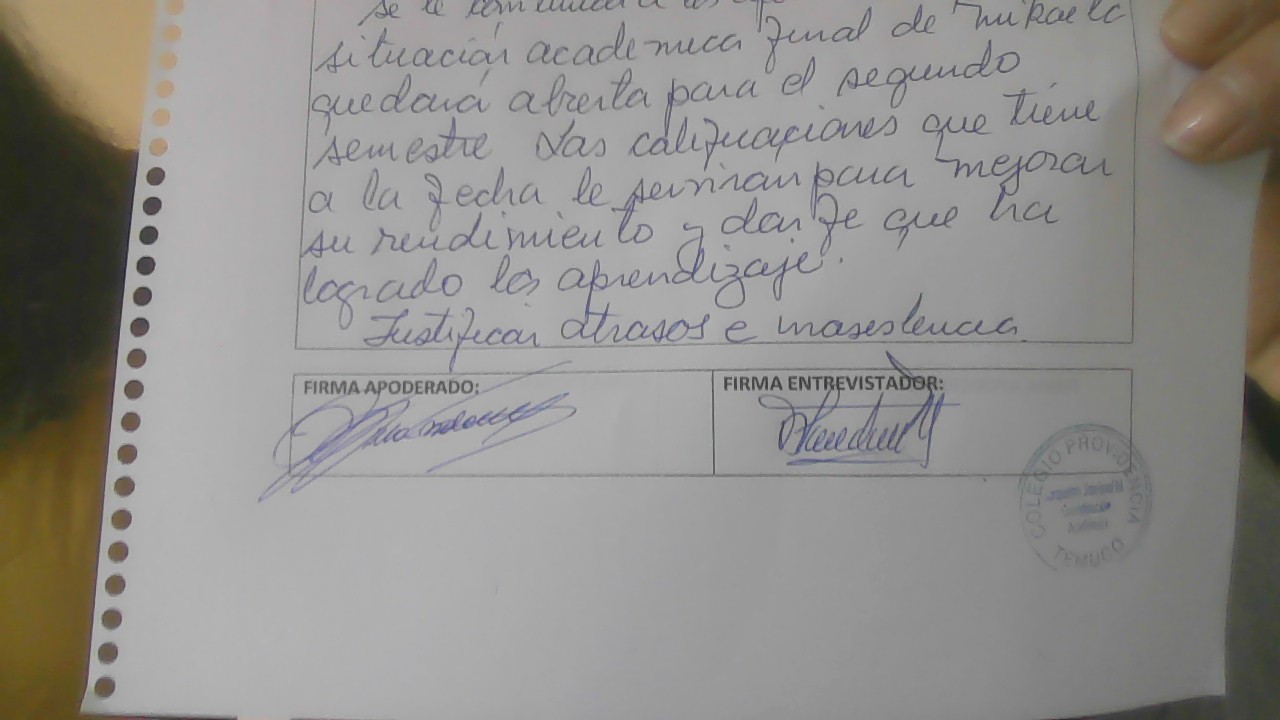 se le comunica a los
situación academica final de mikaela
quedará abierta para el segundo
semestre Las calificaciones que tiene
a la fecha le serviran para mejorar
su rendimiento y dar fe que ha
logrado los aprendizaje.
Justificar atrasos e inasistencia.
FIRMA APODERADO:
FIRMA ENTREVISTADOR:
COLEGIO PROVIDENCIA
TEMUCO